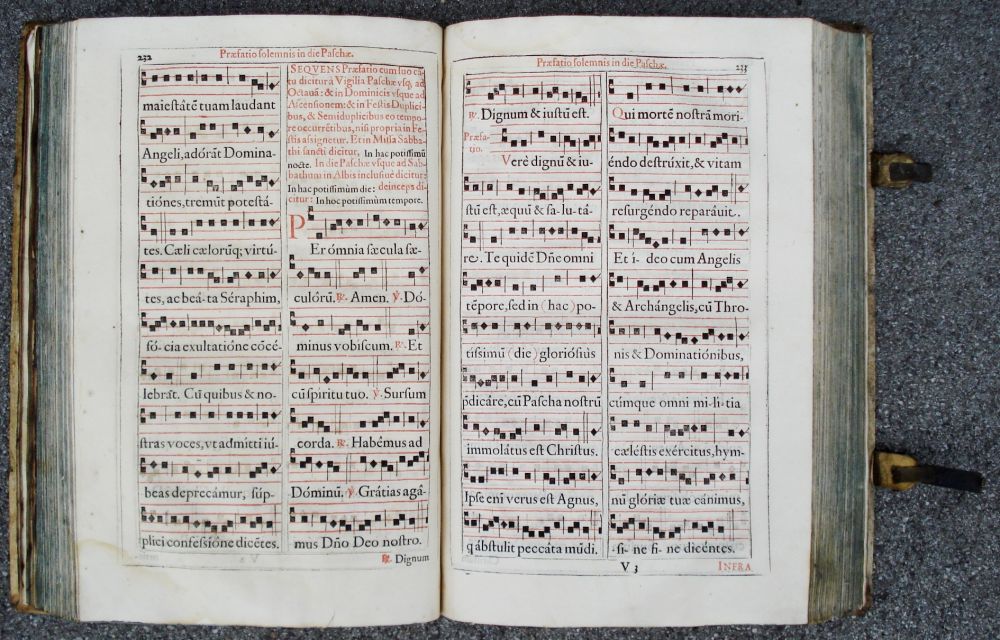 232
Præfatio solemnis in die Paschæ.
maiestátē tuam laudant
Angeli, adórāt Domina-
tiónes, tremūt potestá-
tes. Cæli cælorūq; virtú-
tes, ac beá-ta Séraphim,
só-cia exultatióne cōcé-
lebrāt. Cū quibus & no-
stras voces, vt admitti iú-
beas deprecámur, súp-
plici confessióne dicētes.
SEQVENS Præfatio cum suo cā-
tu dicitur à Vigilia Paschæ vsq; ad
Octauā: & in Dominicis vsque ad
Ascensionem: & in Festis Duplici-
bus, & Semiduplicibus eo tempo-
re occurrētibus, nisi propria in Fe-
stis assignetur. Et in Missa Sabba-
thi sancti dicitur, In hac potissimū
nocte. In die Paschæ vsque ad Sab-
bathum in Albis inclusiuè dicitur:
In hac potissimùm die: deinceps di-
citur: In hoc potissimùm tempore.
PEr ómnia sæcula sæ-
culórū. ℟. Amen. ℣. Dó-
minus vobiscum. ℟. Et
cū spiritu tuo. ℣. Sursum
corda. ℟. Habémus ad
Dóminū. ℣. Grátias agâ-
mus Dño Deo nostro.
℟. Dignum
Præfatio solemnis in die Paschæ.
233
℟. Dignum & iustū est.
Præfa-
tio.
Verè dignū & iu-
stū est, æquū & sa-lu-tá-
re. Te quidē Dñe omni
tēpore, sed in (hac) po-
tissimū (die) gloriósiùs
p̄dicáre, cū Pascha nostrū
immolátus est Christus.
Ipse enī verus est Agnus,
q ábstulit peccáta mūdi.
Qui mortē nostrā mori-
éndo destrúxit, & vitam
resurgéndo reparáuit.
Et í- deo cum Angelis
& Archángelis, cū Thro-
nis & Dominatiónibus,
cúmque omni mi-li-tia
cæléstis exércitus, hym-
nū glóriæ tuæ cánimus,
si-ne fi-ne dicéntes.
V 3
INFRA